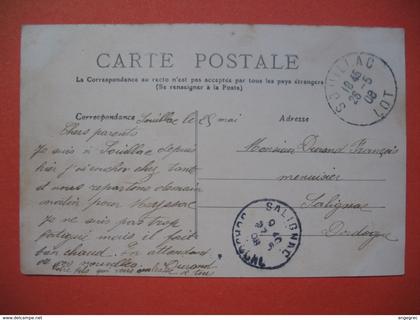 CARTE POSTALE
La Correspondance au recto n'est pas acceptée par tous les pays étrangers
(Se renseigner à la Poste)
Correspondance
Adresse
Souillac le 25 mai
Chers parents
Je suis à Souillac depuis
hier j'ai couché chez
et nous repartons demain
matin pour
Je ne suis pas trop
fatigué mais il fait
bien chaud. En attendant
de vos nouvelles. Durand
Votre fils qui vous embrasse de
Monsieur Durand François
menuisier
Salignac
Dordogne
SOUILLAC
18 45
26 - 5
08
LOT
SALIGNAC
DORDOGNE
08
angegrec